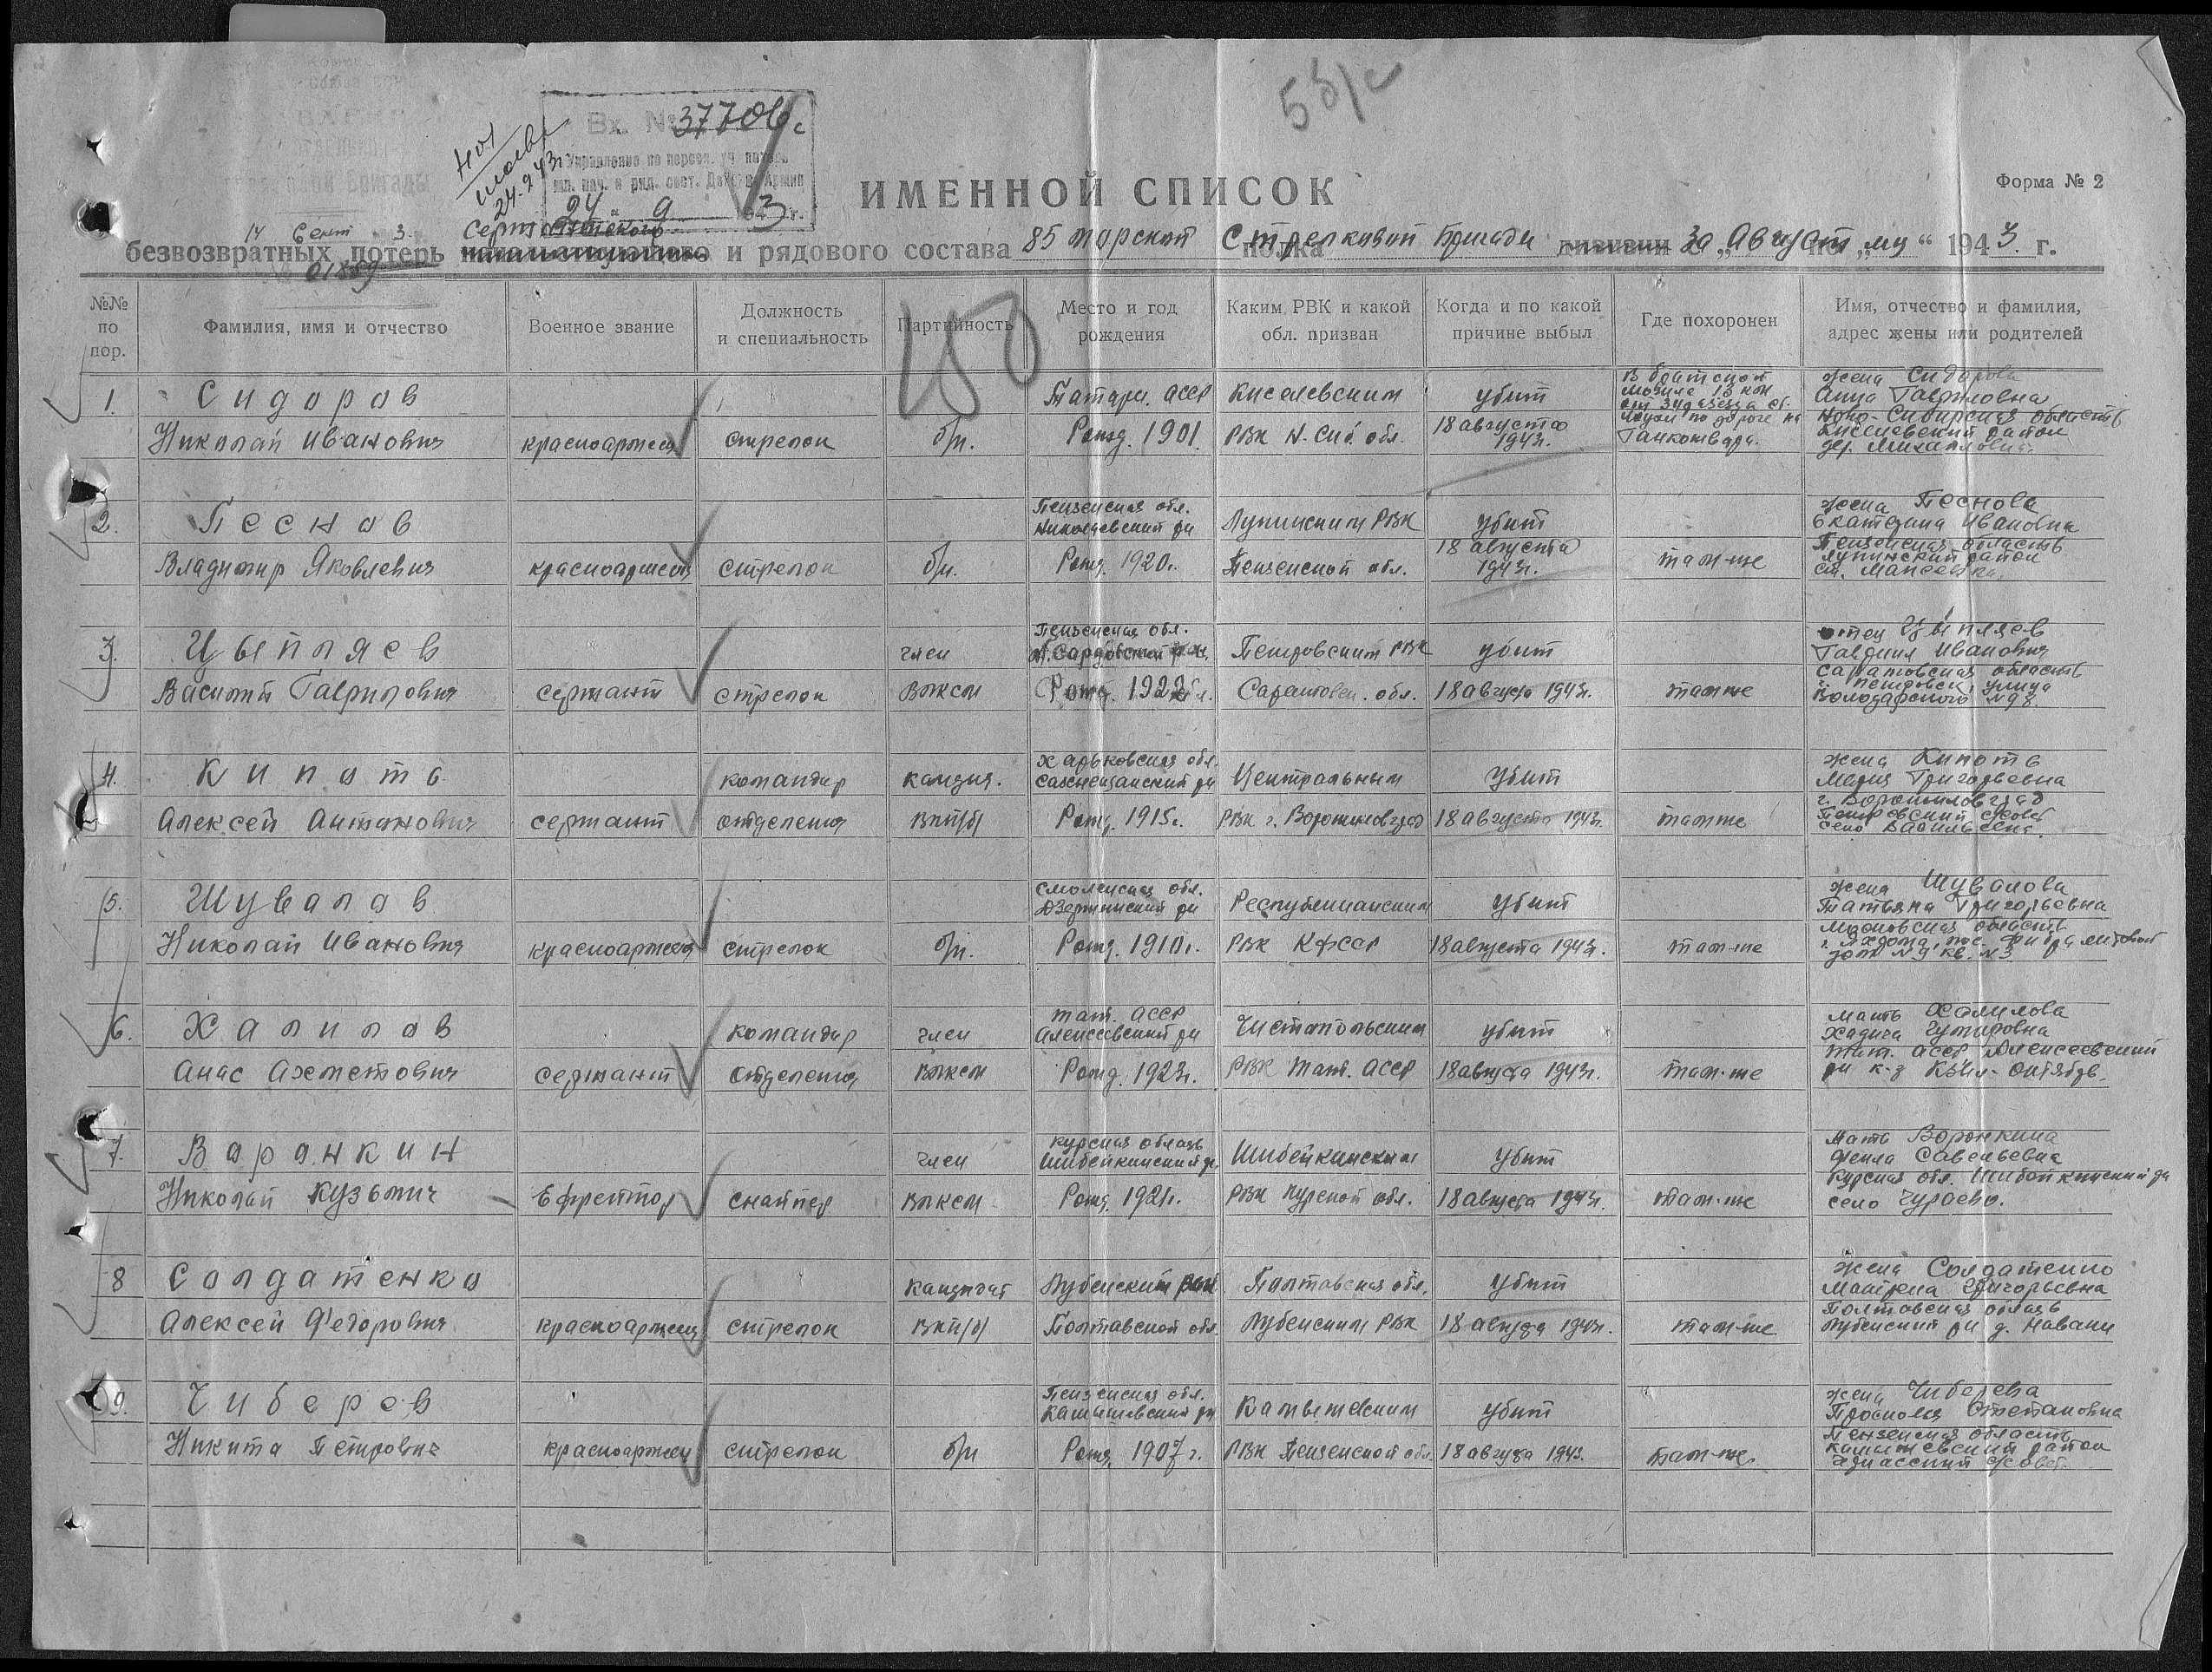 5 б/с
Вх. № 37706с
Управление по персон. уч. потерь
мл. нач. и ряд. сост. Действ. Армии
24 9 3 г.
24.9.43г.
ИМЕННОЙ СПИСОК
Форма № 2
14 Сент 3.
сержантского
безвозвратных потерь и рядового состава 85 морской Стрелковой Бригады полка дивизии за „Август м-ц“ 1943 г.
№№ по пор.
Фамилия, имя и отчество
Военное звание
Должность и специальность
Партийность
Место и год рождения
Каким РВК и какой обл. призван
Когда и по какой причине выбыл
Где похоронен
Имя, отчество и фамилия, адрес жены или родителей
150
1. Сидоров
Николай Иванович
красноармеец
стрелок
б/п.
Татарс. АССР
Рожд. 1901
Киселевским
РВК Н-Сиб. обл.
убит
18 августа
1943г.
В братской
могиле 13 км
жена Сидорова
Анна
Ново-Сибирская область
Киселевский район
дер.
2. Песнов
Владимир Яковлевич
красноармеец
стрелок
б/п.
Пензенская обл.
Николаевский р-н
Рожд. 1920г.
Лунинским РВК
Пензенской обл.
убит
18 августа
1943г.
там-же
жена Песнова
Екатерина Ивановна
Пензенская область
Лунинский район
ст.
3. Цыпляев
Василий Гаврилович
сержант
стрелок
член
ВЛКСМ
Пензенская обл.
Рожд. 1922г.
Петровским РВК
Саратовск. обл.
убит
18 августа 1943г.
там же
отец Цыпляев
Гаврил Иванович
Саратовская область
г. Петровск, улица
Володарского № 98.
4. Кипоть
Алексей Антонович
сержант
командир
отделения
кандид.
ВКП/б/
Харьковская обл.
Сахновщанский р-н
Рожд. 1915г.
Центральным
РВК г. Ворошиловград
убит
18 августа 1943г.
там же
жена Кипоть
Мария Григорьевна
г. Ворошиловград
Петровский с/совет
село
5. Шувалов
Николай Иванович
красноармеец
стрелок
б/п.
Смоленская обл.
Дзержинский р-н
Рожд. 1910г.
Республиканским
РВК КФССР
убит
18 августа 1943г.
там-же
жена Шувалова
Татьяна Григорьевна
Московская область
дом № 9 кв. № 3
6. Халилов
Анас Ахметович
сержант
командир
отделения
член
ВЛКСМ
тат. АССР
Алексеевский р-н
Рожд. 1923г.
Чистопольским
РВК Тат. АССР
убит
18 августа 1943г.
там-же
мать Халилова
Хадича
тат. АССР Алексеевский
р-н к-з Кзыл-Октябрь.
7. Воронкин
Николай Кузьмич
Ефрейтор
снайпер
член
ВЛКСМ
Курская область
Шибекинский р-н
Рожд. 1921г.
Шибекинским
РВК Курской обл.
убит
18 августа 1943г.
там-же
мать Воронкина
Савельевна
Курская обл. Шибекинский р-н
село Чураево.
8 Солдатенко
Алексей Федорович
красноармеец
стрелок
кандидат
ВКП/б/
Лубенский район
Полтавской обл.
Полтавская обл.
Лубенским РВК
убит
18 августа 1943г.
там-же
жена Солдатенко
Матрена Григорьевна
Полтавская область
Лубенский р-н д.
9. Чиберев
Никита Петрович
красноармеец
стрелок
б/п
Пензенская обл.
Камышевский р-н
Рожд. 1907г.
Камышевским
РВК Пензенской обл.
убит
18 августа 1943.
там-же.
жена Чиберева
Просковья Степановна
Пензенская область
Камышевский район
с/совет.